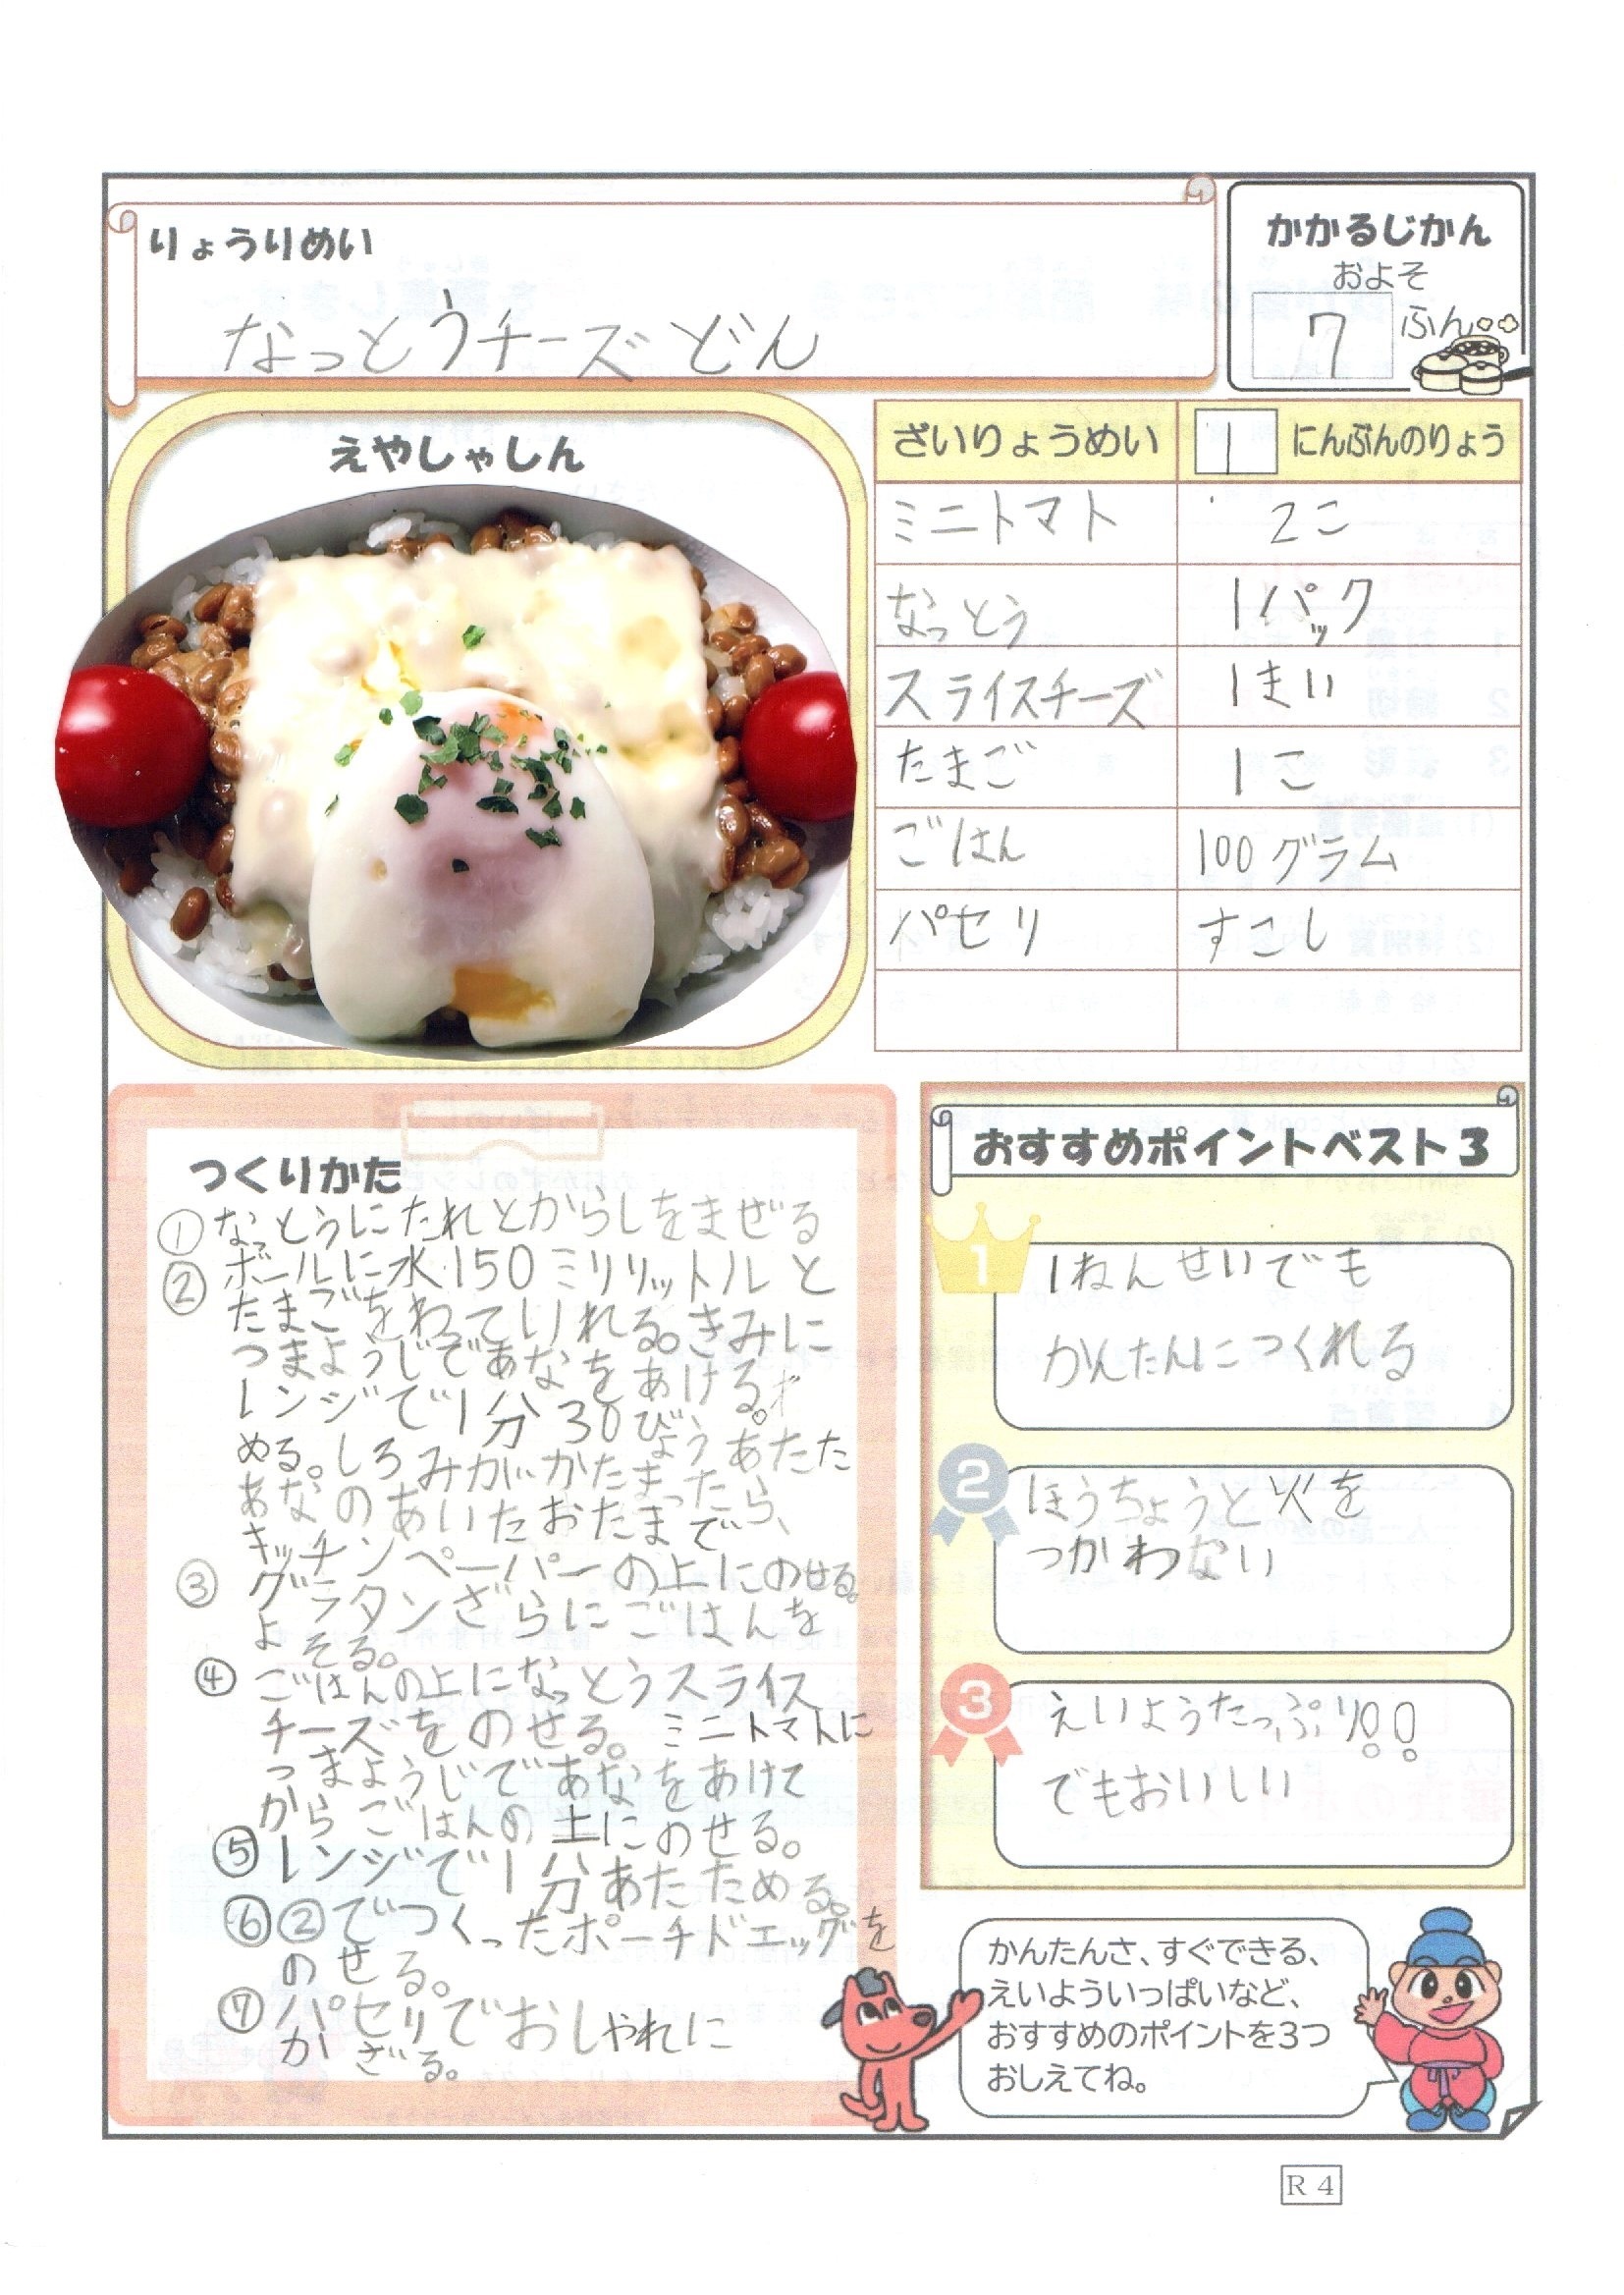 りょうりめい
なっとうチーズどん
かかるじかん
およそ
7 ふん
えやしゃしん
ざいりょうめい 1 にんぶんのりょう
ミニトマト 2こ
なっとう 1パック
スライスチーズ 1まい
たまご 1こ
ごはん 100グラム
パセリ すこし
つくりかた
①なっとうにたれとからしをまぜる
②ボールに水150ミリリットルと
たまごをわっていれる。きみに
つまようじであなをあける。
レンジで1分30びょうあたた
める。しろみがかたまったら、
あなのあいたおたまで
キッチンペーパーの上にのせる。
③グラタンざらにごはんを
よそる。
④ごはんの上になっとうスライス
チーズをのせる。ミニトマトに
つまようじであなをあけて
からごはんの上にのせる。
⑤レンジで1分あたためる。
⑥②でつくったポーチドエッグを
のせる。
⑦パセリでおしゃれに
かざる。
おすすめポイントベスト3
1
1ねんせいでも
かんたんにつくれる
2
ほうちょうと火を
つかわない
3
えいようたっぷり!!
でもおいしい
かんたんさ、すぐできる、
えいよういっぱいなど、
おすすめのポイントを3つ
おしえてね。
R4